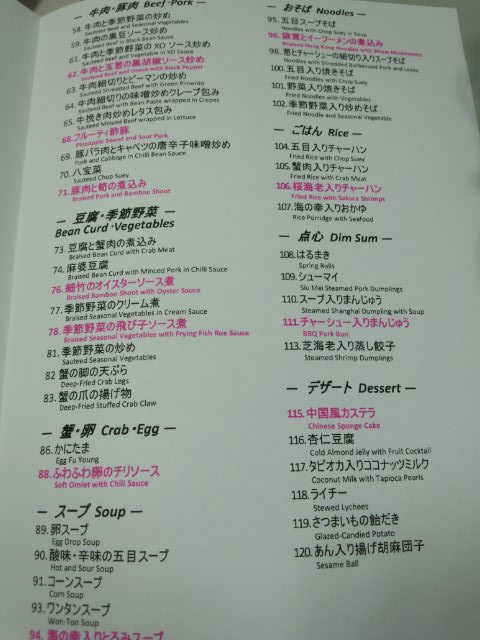 — 牛肉・豚肉 Beef・Pork —
58. 牛肉と季節野菜の炒め
Sauteed Beef and Seasonal Vegetables
59. 牛肉の黒豆ソース炒め
Sauteed Beef in Black Bean Sauce
61. 牛肉と季節野菜の XO ソース炒め
Sauteed Beef and Vegetable in XO Sauce
62. 牛肉と玉葱の黒胡椒ソース炒め
Sauteed Beef and Onion with Black Pepper
63. 牛肉細切りとピーマンの炒め
Sauteed Shredded Beef with Green Pimento
64. 牛肉細切りの味噌炒めクレープ包み
Sauteed Beef with Bean Paste wrapped in Crepes
65. 牛挽き肉炒めレタス包み
Sauteed Minced Beef wrapped in Lettuce
68. フルーティ酢豚
Pineapple Sweet and Sour Pork
69. 豚バラ肉とキャベツの唐辛子味噌炒め
Pork and Cabbage in Chilli Bean Sauce
70. 八宝菜
Sauteed Chop Suey
71. 豚肉と筍の煮込み
Braised Pork and Bamboo Shoot
— 豆腐・季節野菜 —
Bean Curd・Vegetables
73. 豆腐と蟹肉の煮込み
Braised Bean Curd with Crab Meat
74. 麻婆豆腐
Braised Bean Curd with Minced Pork in Chilli Sauce
76. 細竹のオイスターソース煮
Braised Bamboo Shoot with Oyster Sauce
77. 季節野菜のクリーム煮
Braised Seasonal Vegetables in Cream Sauce
78. 季節野菜の飛び子ソース煮
Braised Seasonal Vegetables with Frying Fish Roe Sauce
81. 季節野菜の炒め
Sauteed Seasonal Vegetables
82 蟹の脚の天ぷら
Deep-Fried Crab Legs
83. 蟹の爪の揚げ物
Deep-Fried Stuffed Crab Claw
— 蟹・卵 Crab・Egg —
86. かにたま
Egg Fu Young
88. ふわふわ卵のチリソース
Soft Omlet with Chili Sauce
— スープ Soup —
89. 卵スープ
Egg Drop Soup
90. 酸味・辛味の五目スープ
Hot and Sour Soup
91. コーンスープ
Corn Soup
93. ワンタンスープ
Won-Ton Soup
94. 海の幸入りとろみスープ
— おそば Noodles —
95. 五目スープそば
Noodles with Chop Suey in Soup
96. 袋茸とイーフーメンの煮込み
Braised Hong Kong Noodles with Straw Mushrooms
98. 葱とチャーシューの細切り入りスープそば
Noodles with Shredded Barbecued Pork and Leeks
100. 五目入り焼きそば
Fried Noodles with Chop Suey
101. 野菜入り焼きそば
Fried Noodles with Vegetables
102. 季節野菜入り炒めそば
Fried Noodle and Seasonal Vegetable
— ごはん Rice —
104. 五目入りチャーハン
Fried Rice with Chop Suey
105. 蟹肉入りチャーハン
Fried Rice with Crab Meat
106. 桜海老入りチャーハン
Fried Rice with Sakura Shrimps
107. 海の幸入りおかゆ
Rice Porridge with Seafood
— 点心 Dim Sum —
108. はるまき
Spring Rolls
109. シューマイ
Siu Mai Steamed Pork Dumplings
110. スープ入りまんじゅう
Steamed Shanghai Dumpling with Soup
111. チャーシュー入りまんじゅう
BBQ Pork Bun
113. 芝海老入り蒸し餃子
Steamed Shrimp Dumplings
— デザート Dessert —
115. 中国風カステラ
Chinese Sponge Cake
116. 杏仁豆腐
Cold Almond Jelly with Fruit Cocktail
117. タピオカ入りココナッツミルク
Coconut Milk with Tapioca Pearls
118. ライチー
Stewed Lychees
119. さつまいもの飴だき
Glazed-Candied Potato
120. あん入り揚げ胡麻団子
Sesame Ball